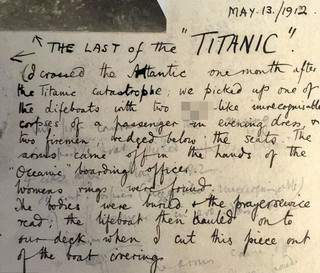 MAY. 13. / 1912.
THE LAST of the "TITANIC".
I'd crossed the Atlantic one month after
the Titanic catastrophe; we picked up one of
the lifeboats with two -like unrecognisable
corpses of a passenger in evening dress, &
two firemen wedged below the seats. The
arms came off in the hands of the
"Oceanic boarding officer.
Womens rings were found
The bodies were buried & the prayerservice
read; the lifeboat then hauled on to
our deck, when I cut this piece out
of the boat covering.